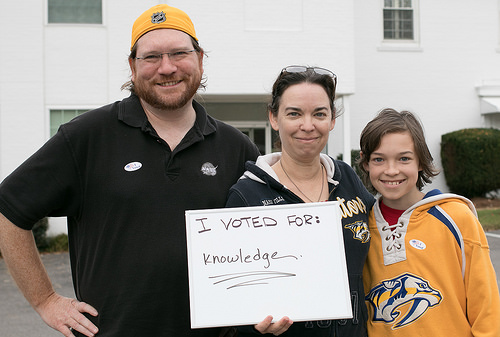 I VOTED FOR:
Knowledge.